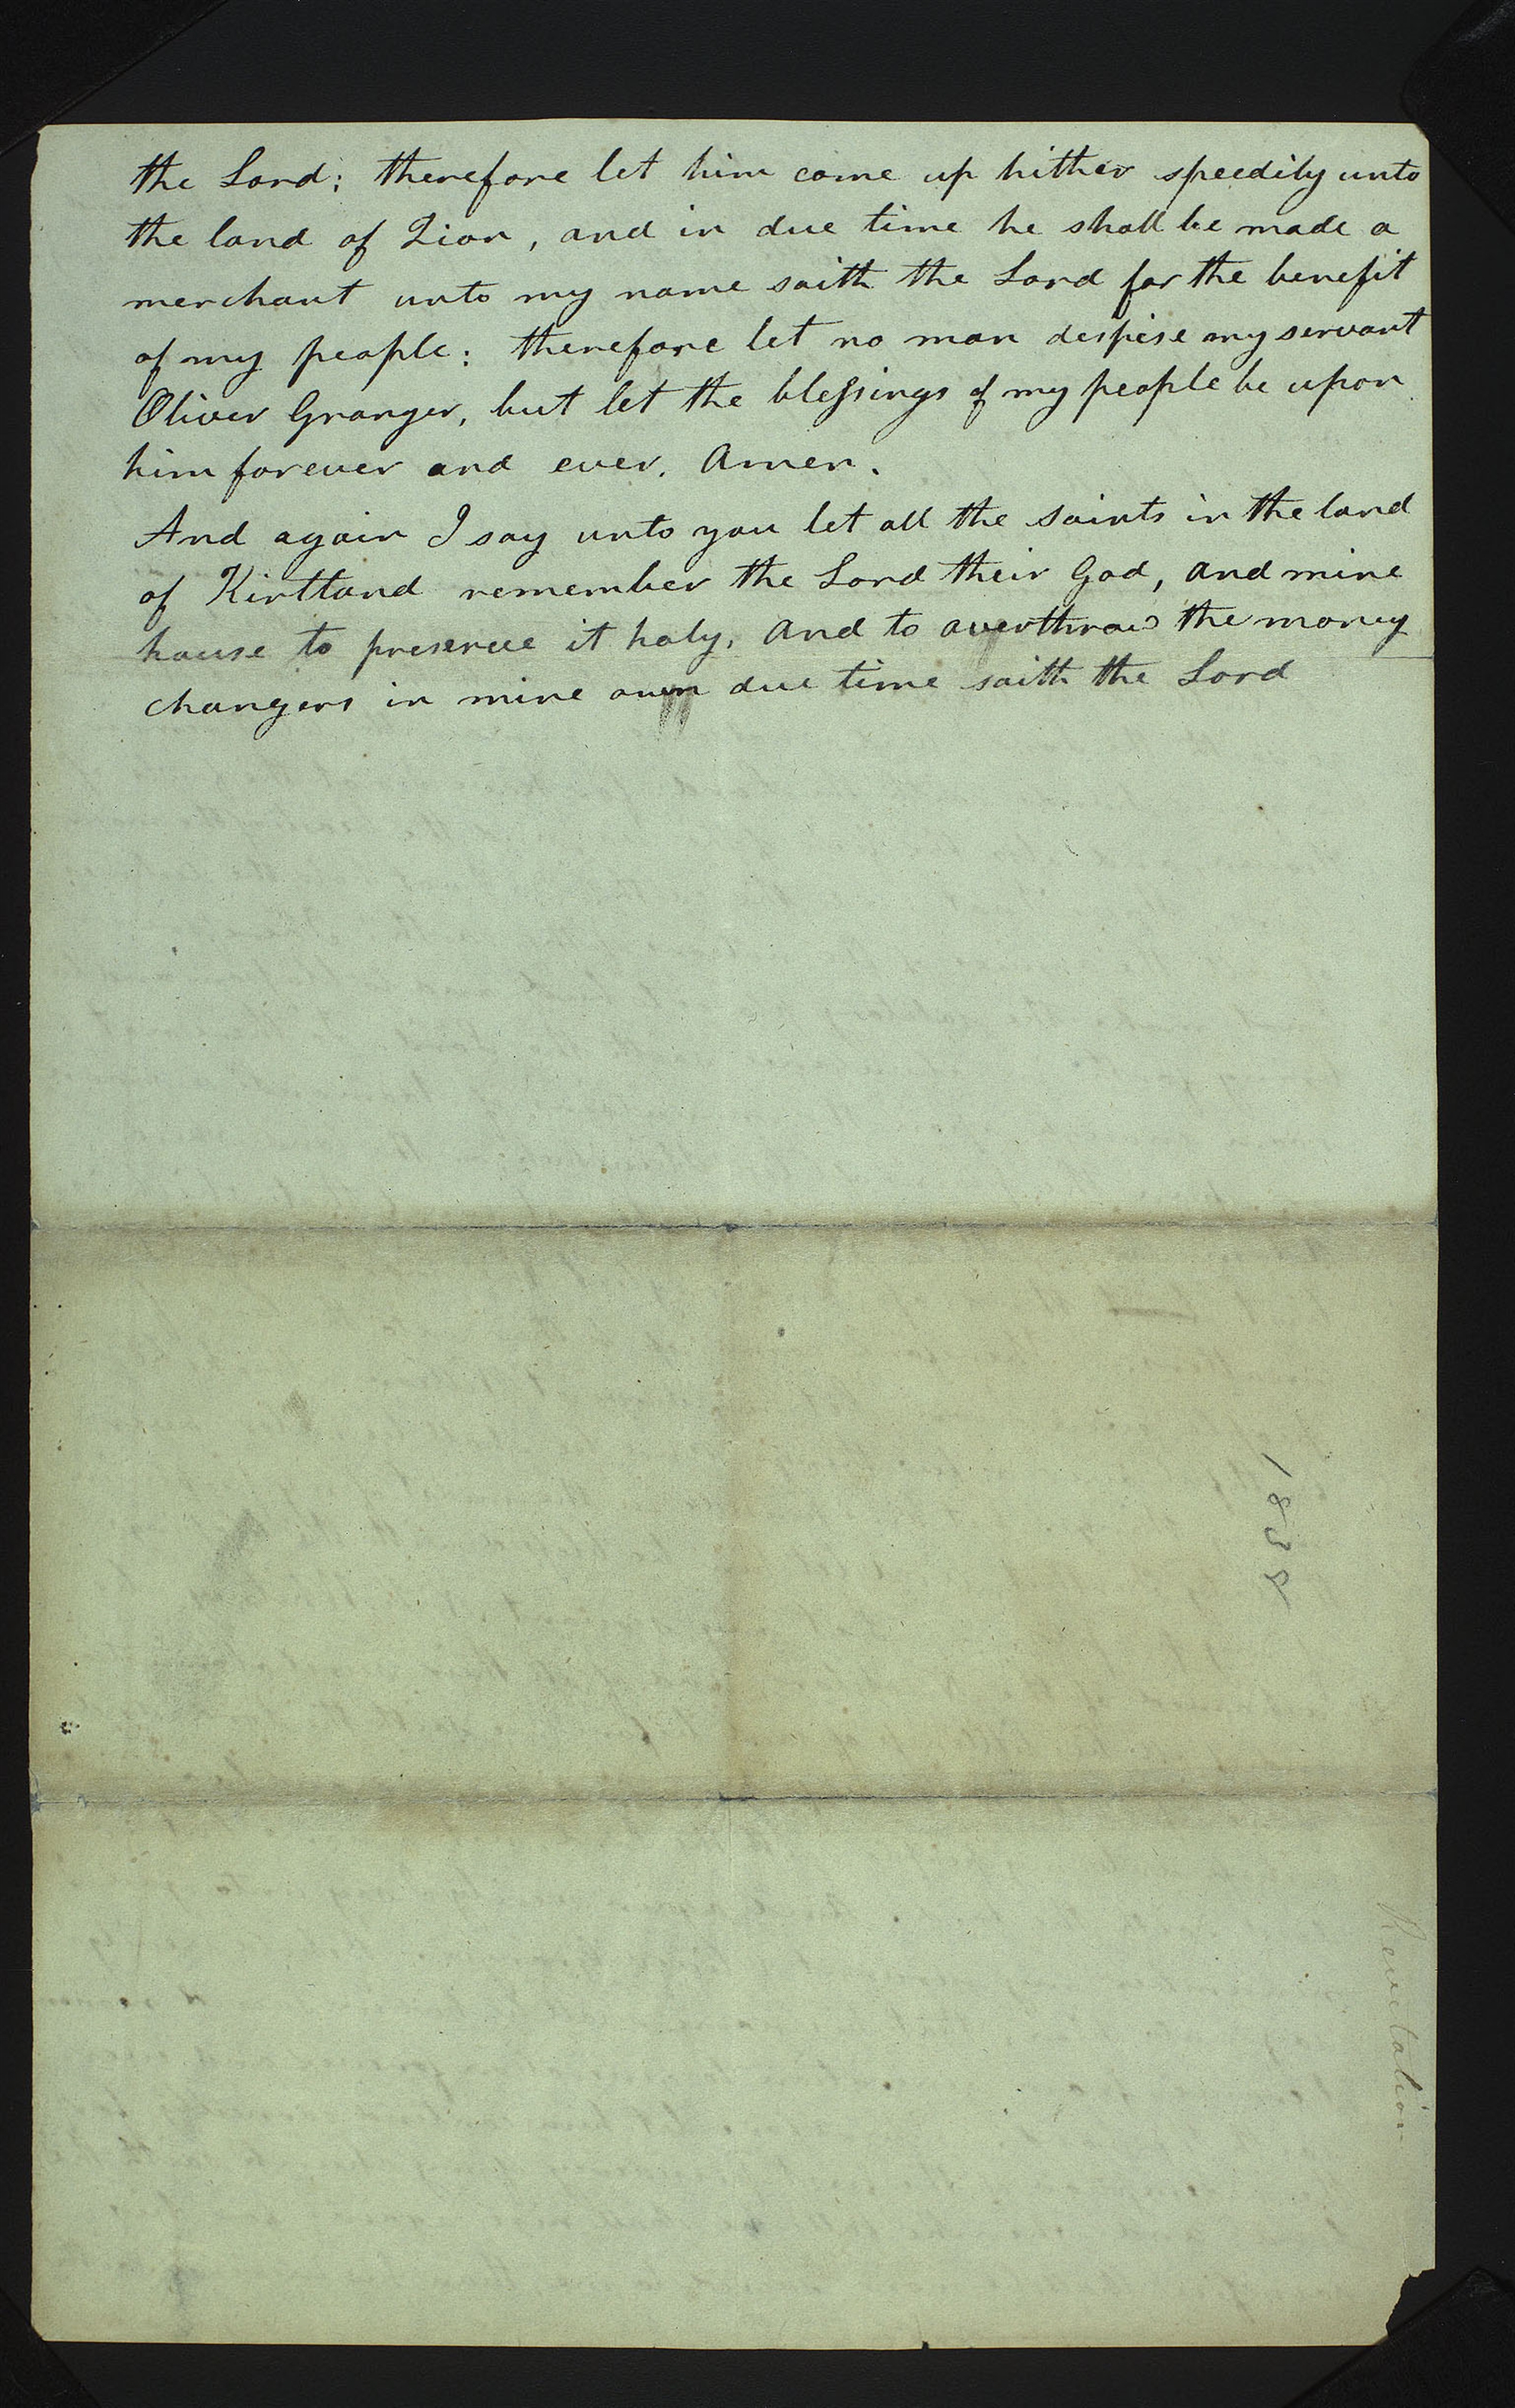 the Lord; therefore let him come up hither speedily unto
the land of Zion, and in due time he shall be made a
merchant unto my name saith the Lord for the benefit
of my people: therefore let no man despise my servant
Oliver Granger, but let the blessings of my people be upon
him forever and ever. Amen.
And again I say unto you let all the saints in the land
of Kirtland remember the Lord their God, and mine
house to preserve it holy, and to overthrow the money
changers in mine own due time saith the Lord
1838
Revelation